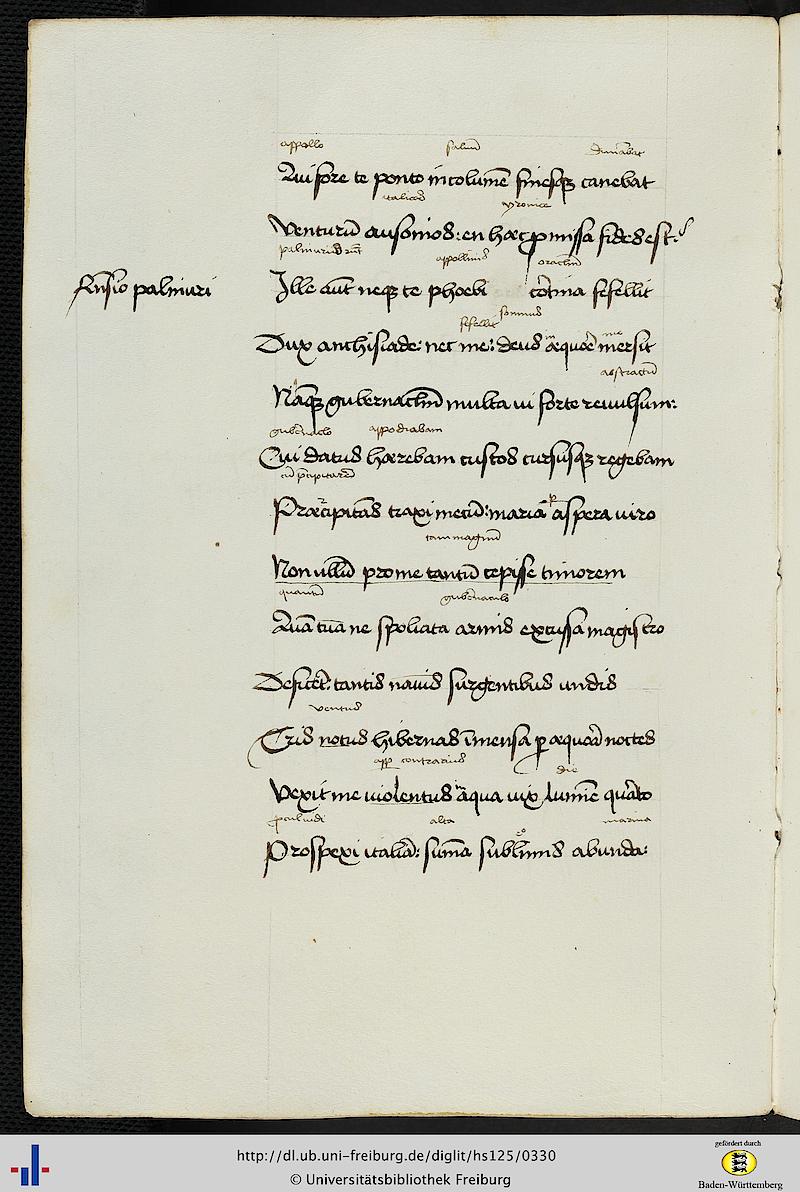 appollo saluū diuīabat
Qui fore te ponto incolumē finesq canebat
italicos yronice
Venturū ausonios: en hæc promissa fides est.
palinurus appollinis oraclm̄
Rn̄sio palinuri
Ille aūt neq te phoebi cortina fefellit
fefellit somnus
Dux anchisiade: nec me: deus æquore mersit
abstractū
Nāq gubernaclm̄ multa ui forte reuulsum:
gub̄naclo appodiabam
Cui datus hærebam custos cursusq regebam
cū p̄cipitarer
Præcipitās traxi mecū: maria aspera iuro
tam magnū
Non ullū pro me tantū cepisse timorem
quantū gub̄naculo
Quā tua ne spoliata armis excussa magistro
Deficer&: tantis nauis surgentibus undis
ventus
Tris notus hibernas īmensa per æquora noctes
contrarius die
Vexit me uiolentus aqua uix lumīe quarto
procul uidi alta marina
Prospexi italiā: summa sublimis ab unda:
http://dl.ub.uni-freiburg.de/diglit/hs125/0330
© Universitätsbibliothek Freiburg
gefördert durch
Baden-Württemberg